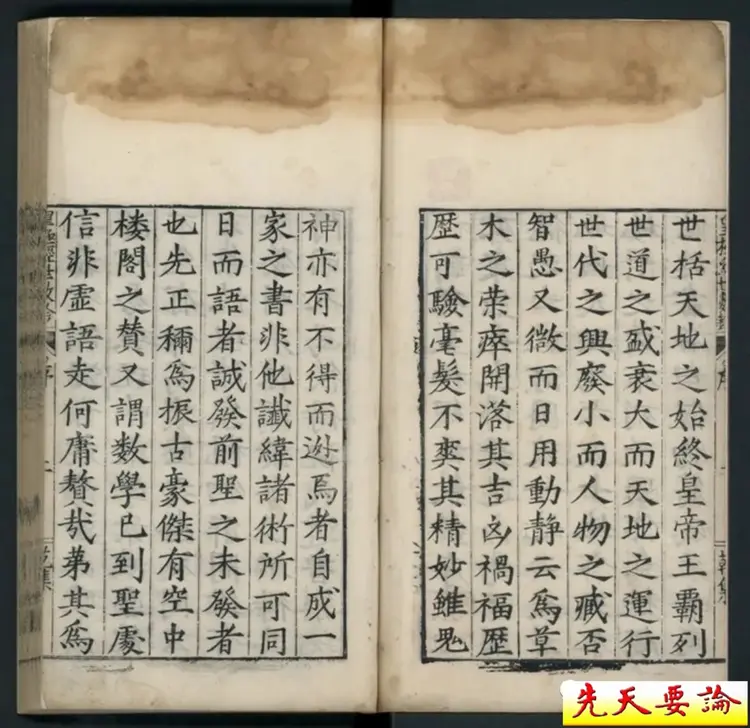 世括天地之始終皇帝王霸列
世道之盛衰大而天地之運行
世代之興廢小而人物之臧否
智愚又微而日用動静云為草
木之荣瘁開落其吉凶禍福歷
歷可驗毫髮不爽其精妙雖鬼
神亦有不得而逃焉者自成一
家之書非他讖緯諸術所可同
日而語者誠發前聖之未發者
也先正稱為振古豪傑有空中
楼閣之賛又謂数學已到聖處
信非虚語走何庸贅哉苐其為
先天要論